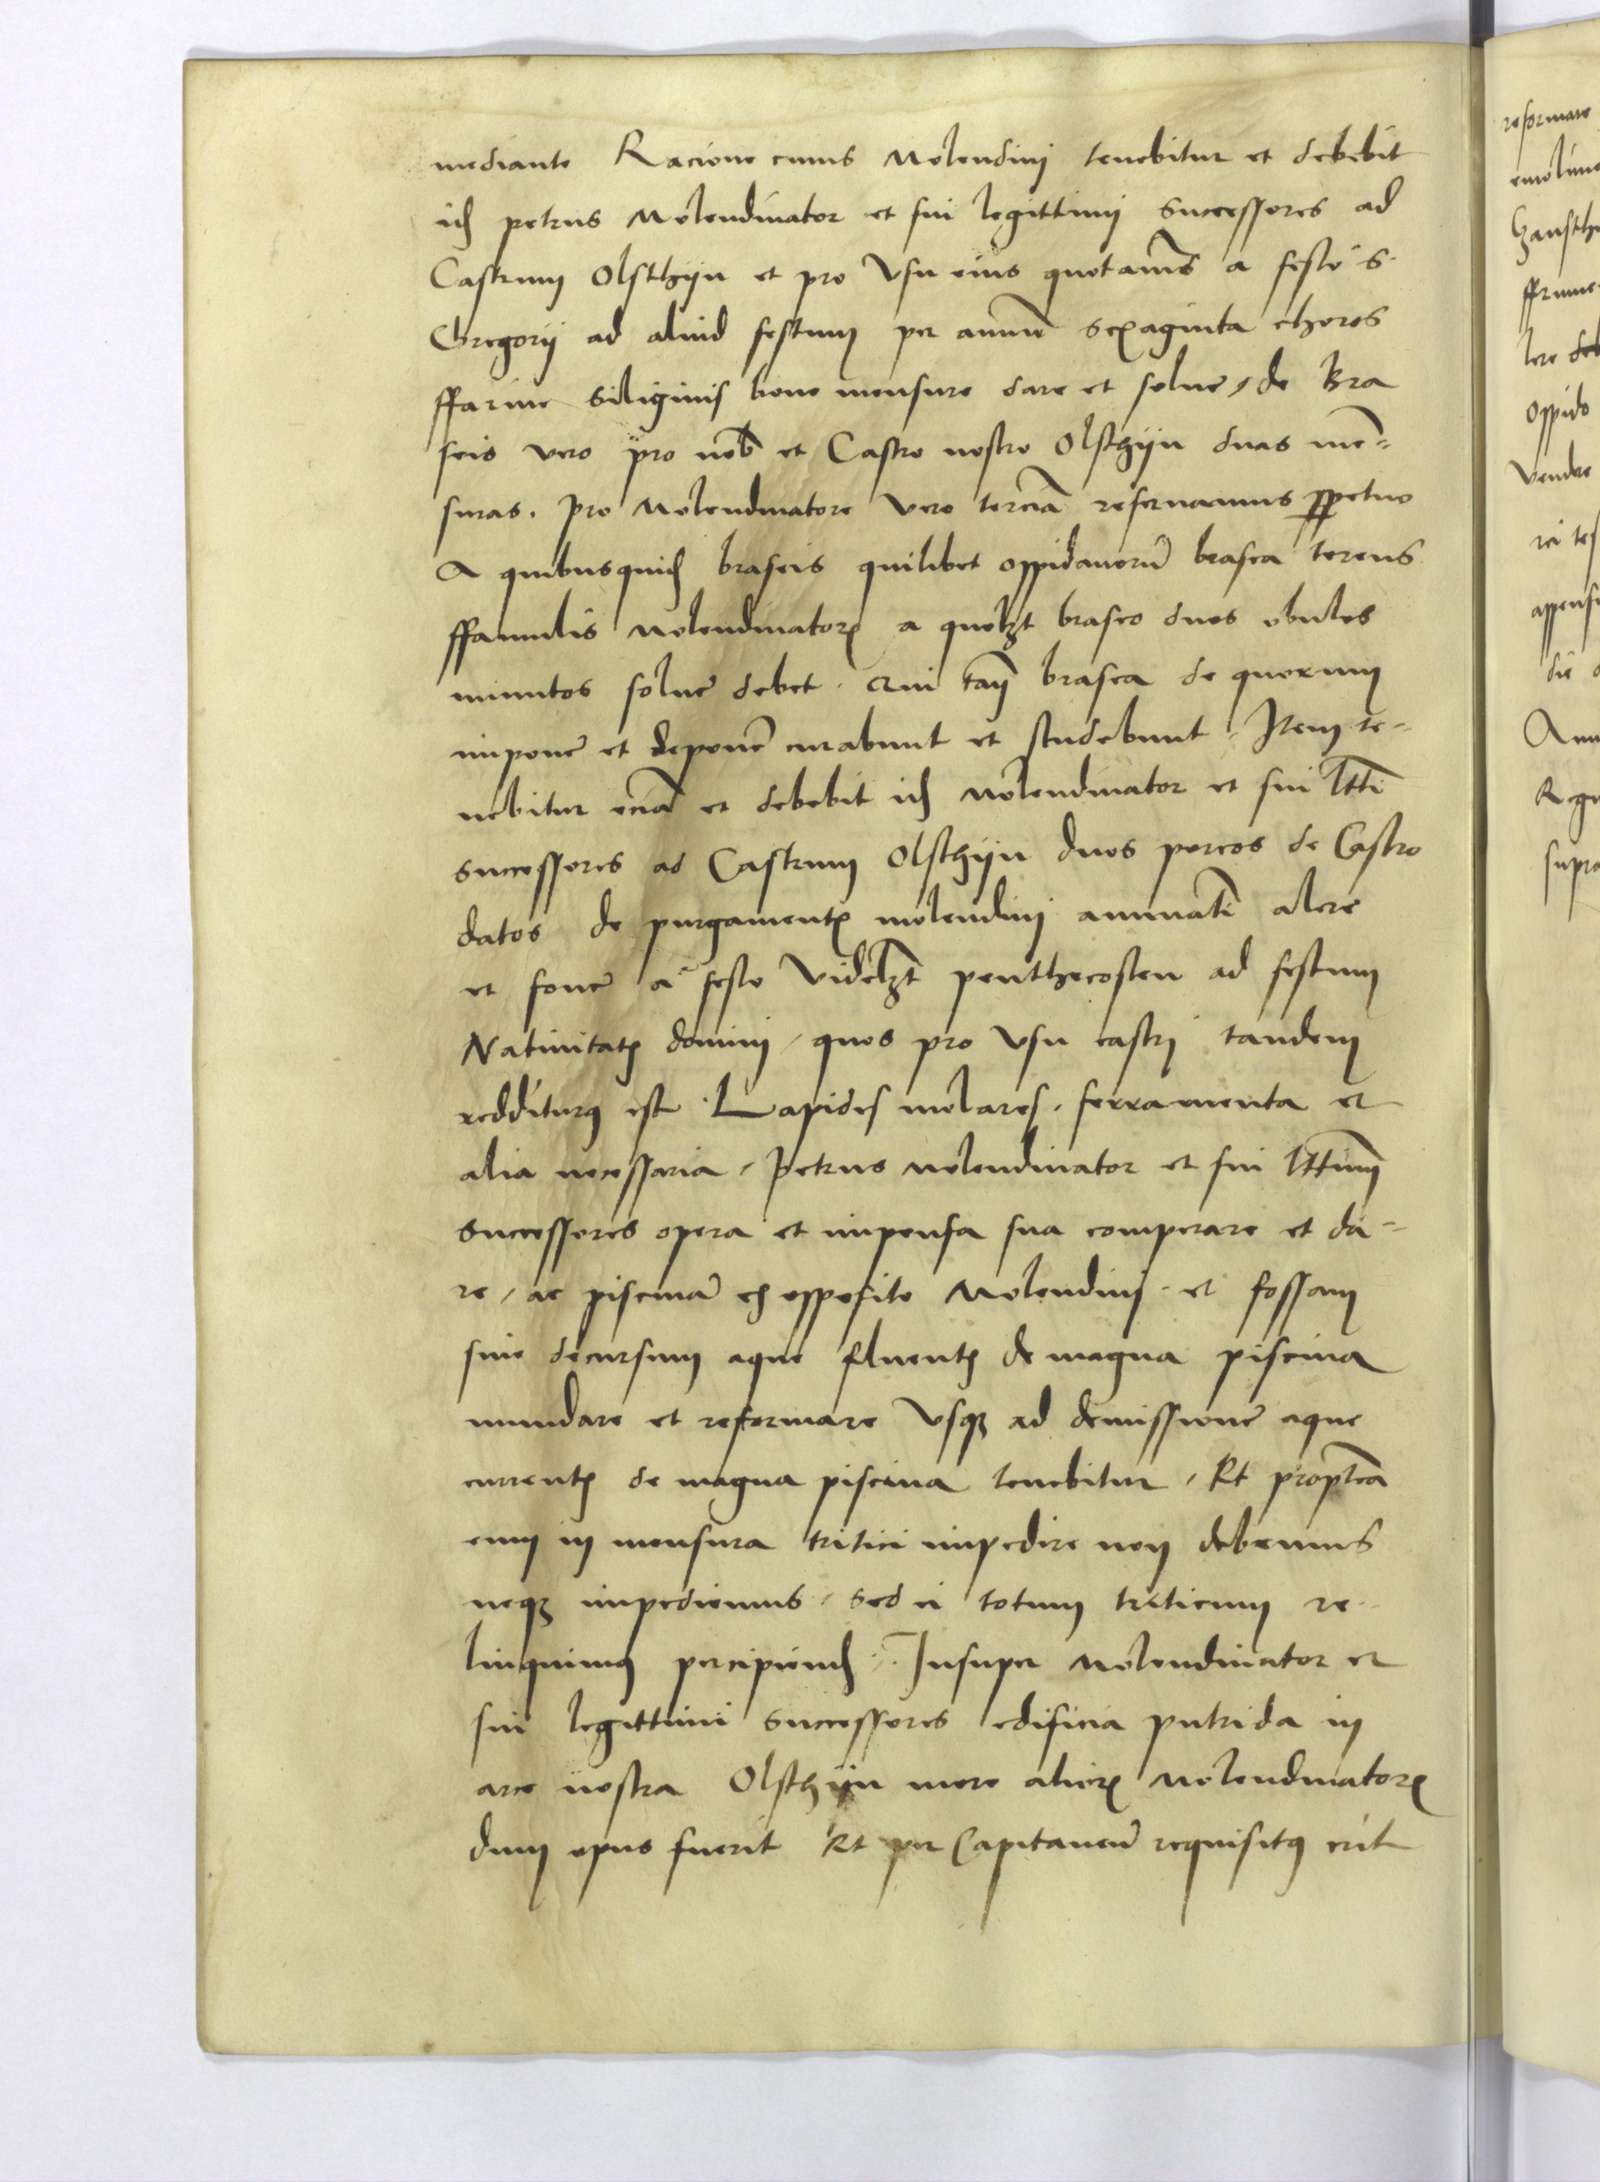 mediante Racione cuius Molendini tenebitur et debebit
id petrus Molendinator et sui legittimi Successores ad
Castrum Olsthyn et pro Vsu eius quotannis a festo S.
Gregorij ad aliud festum per annum Sexaginta choros
ffarine Siliginis bone mensure dare et solue, de Bra
seis vero pro nob et Castro nostro Olsthyn duas men=
suras. pro Molendinatore Vero terciam reseruamus ppetuo
A quibusquid braseis quilibet oppidanorum brasea terens
ffamulis Molendinator a quolzt braseo duos obulos
minutos solue debet. Qui tam brasea de quorum
impone et depone curabunt et studebunt. Item te=
nebitur eciam et debebit id Molendinator et sui ltti
Successores ad Castrum Olsthyn duos porcos de Castro
datos de purgament molendini annuatim alere
et foue a festo Videlzt penthecosten ad festum
Natiuitat domini, quos pro Vsu castri tandem
redditurus est. Lapides molares, ferramenta et
alia necessaria, Petrus Molendinator et sui lttimi
Successores opera et impensa sua comperare et da=
re, ac piscinam ex opposito Molendini et fossam
siue decursum aque fluent de magna piscina
mundare et reformare Vsq ad demissionem aque
current de magna piscina tenebitur, Et proptea
eum in mensura tritici impedire non debemus
neq impediemus, Sed ei totum triticum re=
linquimus percipiend. Insuper Molendinator et
sui legittimi Successores edificia putrida in
arce nostra Olsthyn more alior Molendinator
dum opus fuerit Et per Capitaneum requisitus erit
reformare
oppido
Vendere
supra